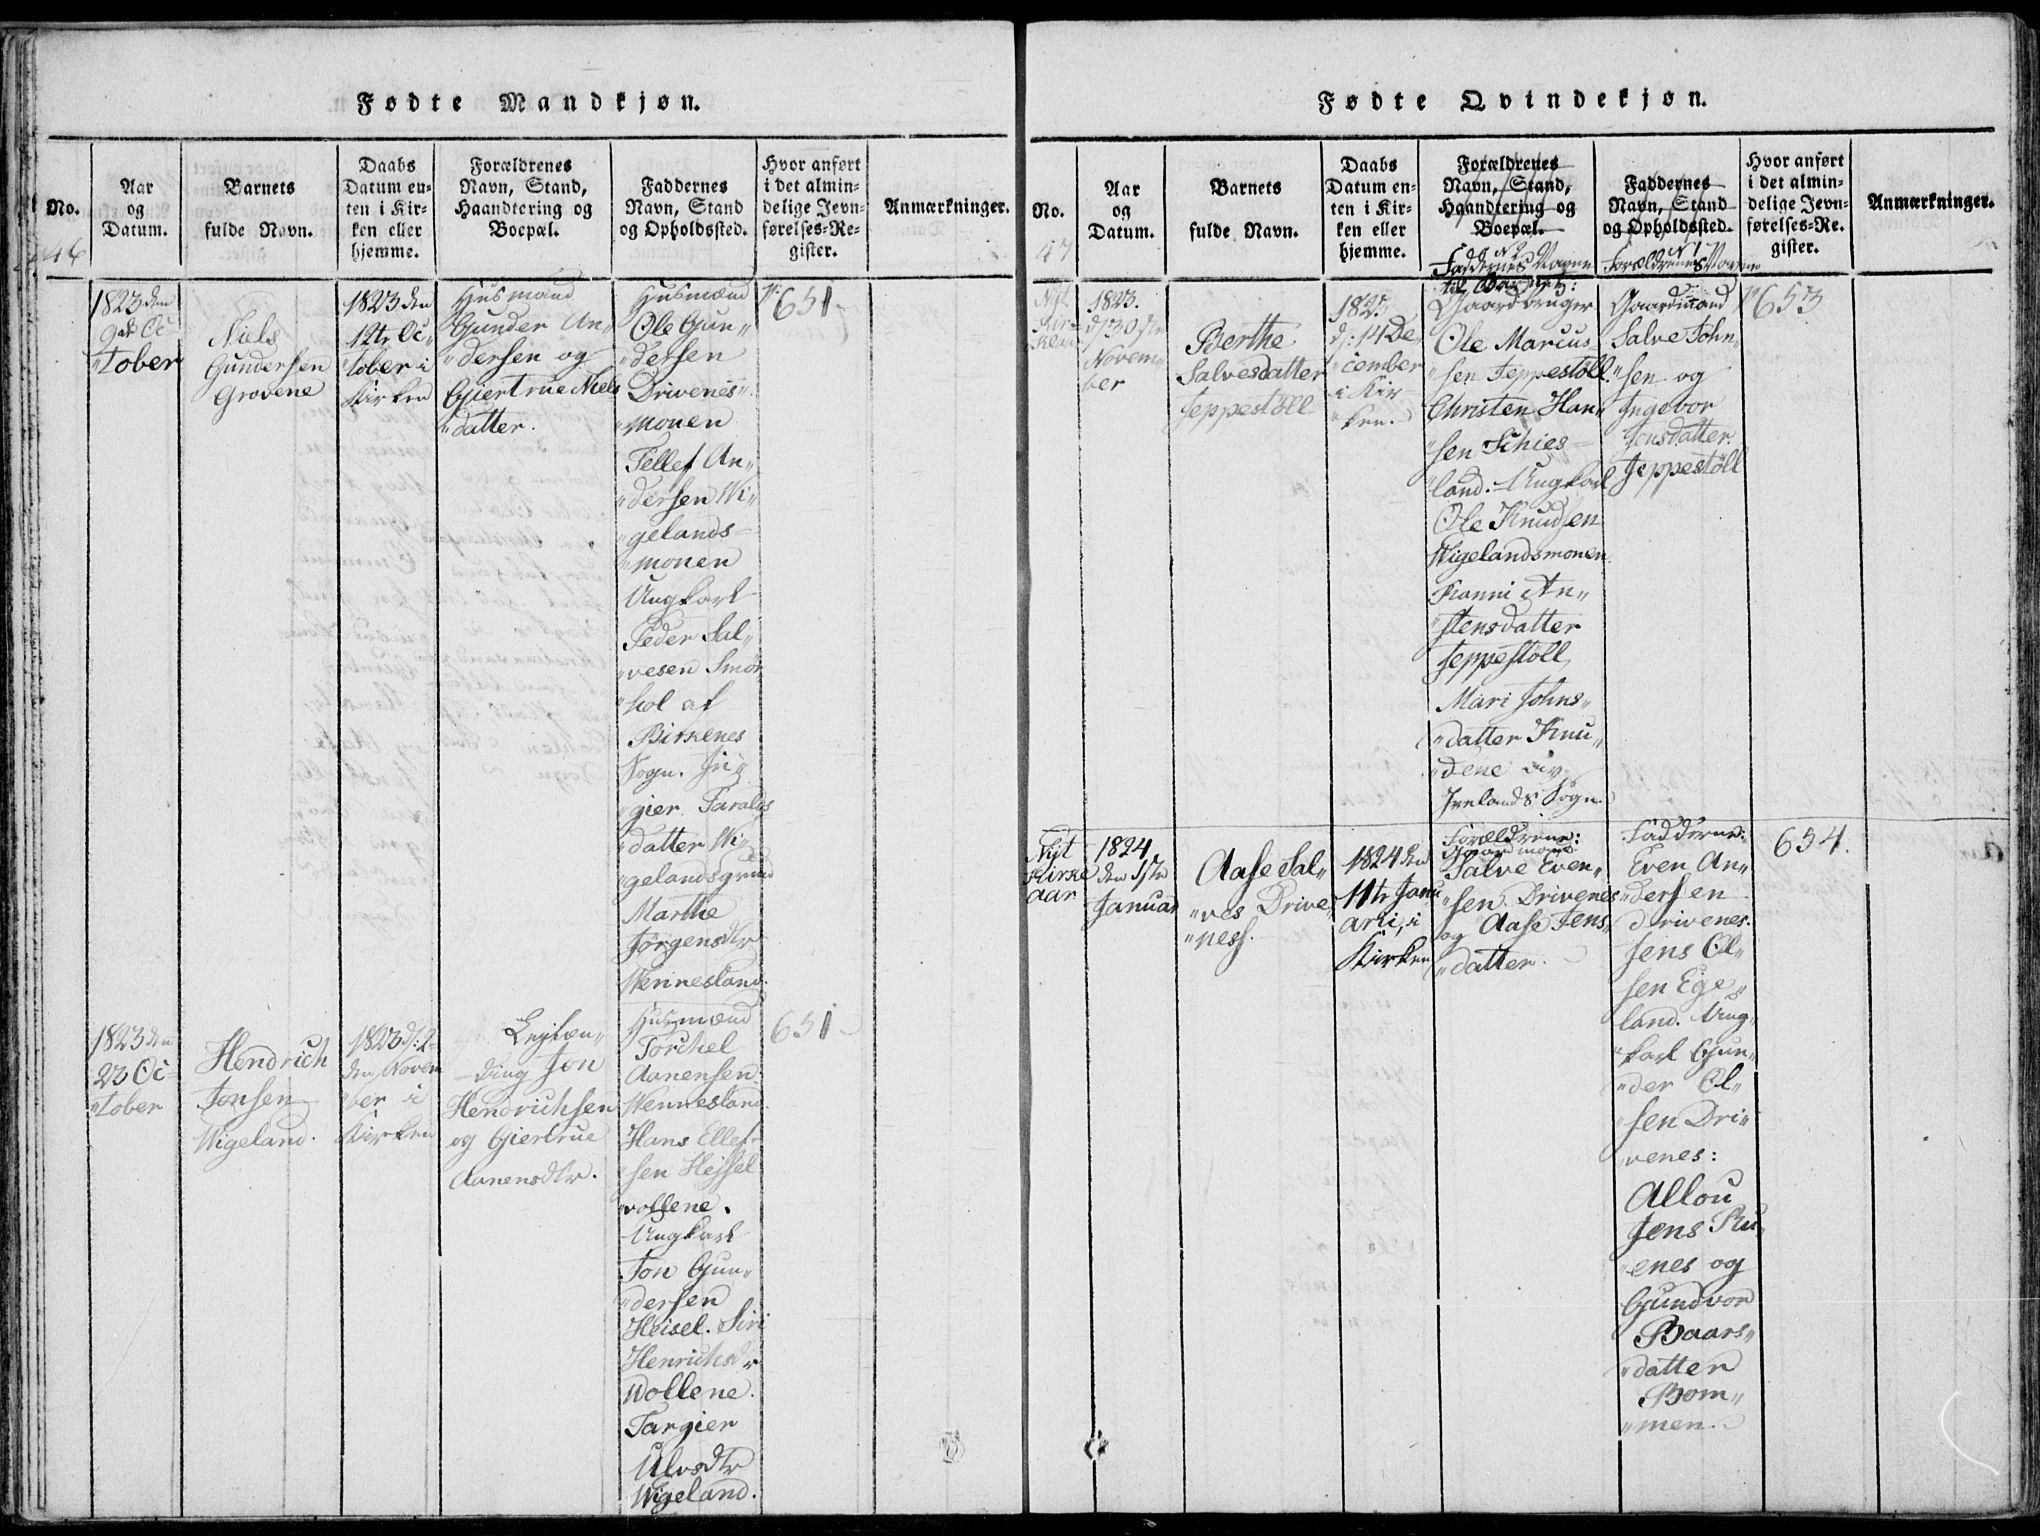 Fødte Mandkjøn.
No.
Aar
og
Datum.
Barnets
fulde Navn.
Daabs
Datum en-
ten i Kir-
ken eller
hjemme.
Forældrenes
Navn, Stand,
Haandtering og
Boepæl.
Faddernes
Navn, Stand
og Opholdssted.
Hvor anført
i det almin-
delige Jevn-
førelses-Re-
gister.
Anmærkninger.
46
1823 den
9de Oc
"tober
Niels
Gundersen
Grovene
1823 den
12te Oc"
"tober i
Kirken
Husmand
Gunder An"
"dersen og
Gjertrue Niels
"datter.
Husmænd
Ole Gun"
"dersen
Drivenes"
"monen
Tellef An"
"dersen Wi"
"gelands-
"monen
Ungkarl
Peder Sal"
"vesen Smör
"hol af
Birkenes
Sogn. In"
"gier Taralds
"datter Wi"
"gelandsgrund
Marthe
Jörgensdtr
Wennesland.
651
1823 den
23 Oc-
"tober
Hendrich
Jonsen
Wigeland.
1823 d: 2-
den Novem
"ber i
Kirken
Lejlæn"
"ding Jon
Hendrichsen
og Gjertrue
Aanensdtr.
Husmænd
Torchel
Aanensen
Wennesland.
Hans Ellef-
"sen Hejsel
"vollene.
Ungkarl
Jon Gun"
"dersen
Heisel. Siri
Henrichsdr
Wollene.
Targier
Ulvsdtr
Wigeland.
651
Fødte Qvindekjøn.
No.
Aar
og
Datum.
Barnets
fulde Navn.
Daabs
Datum en-
ten i Kir-
ken eller
hjemme.
Forældrenes
Navn, Stand,
Haandtering og
Boepæl.
Faddernes Navne
til Barnet:
Faddernes
Navn, Stand
og Opholdssted.
Forældrenes Navne
Hvor anført
i det almin-
delige Jevn-
førelses-Re-
gister.
Anmærkninger.
47
1823.
d: 30 te
Novem"
ber
Berthe
Salvesdatter
Jeppestöll
182
d: 14 De"
"cember
i Kir
"ken.
Gaardbruger
Ole Marcus-
"sen Jeppestöll.
Christen Han"
"sen Schies-
"land. Ungkarl
Ole Knudsen
Wigelandsmonen.
Ranni An"
"stensdatter
Jeppestöll,
Mari Johns"
"datter Knu"
"dene av
Ivelands Sogn.
Gaardmand
Salve John"
"sen og
Ingebor
Jensdatter
Jeppestöll
653
Nyt
Kirke
aar
1824
den 1ste
Januar
Aase Sal"
"ves Drive
"ness.
1824 den
11te Janu
arii, i
Kirken
Forældrene:
Gaardmand
Salve Even"
"sen Drivenes
og Aase Jens"
"datter.
Fadderne:
Even An"
"dersen
Drivenes.
Jens Ol"
"sen Ege"
"land. Ung"
"karl Gun"
"der Ol"
"sen Dri"
"venes:
Allou
Jens Ru"
"enes og
Gundvor
Baars"
"datter
Bom"
"men.
654.